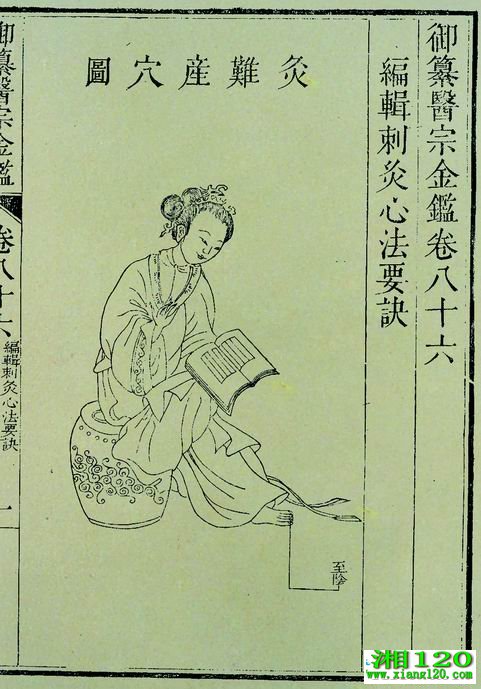 御纂醫宗金鑑卷八十六
編輯刺灸心法要訣
灸難産穴圖
至陰
御纂醫宗金鑑
卷八十六
編輯刺灸心法要訣
一
湘120
www.xiang120.com